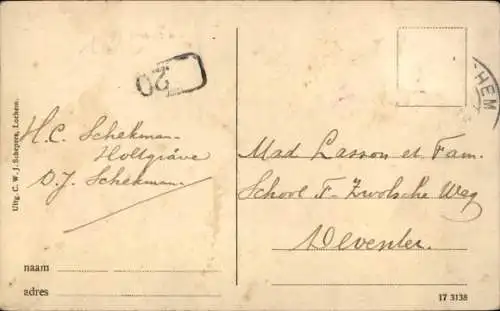 Uitg. C. W. J. Schepers, Lochem.
20
H.C. Schekman-
Holtgräve
D.J. Schekman
naam
adres
HEM
Mad Lasson et Fam.
School F- Zwolsche Weg
Deventer.
17 3138